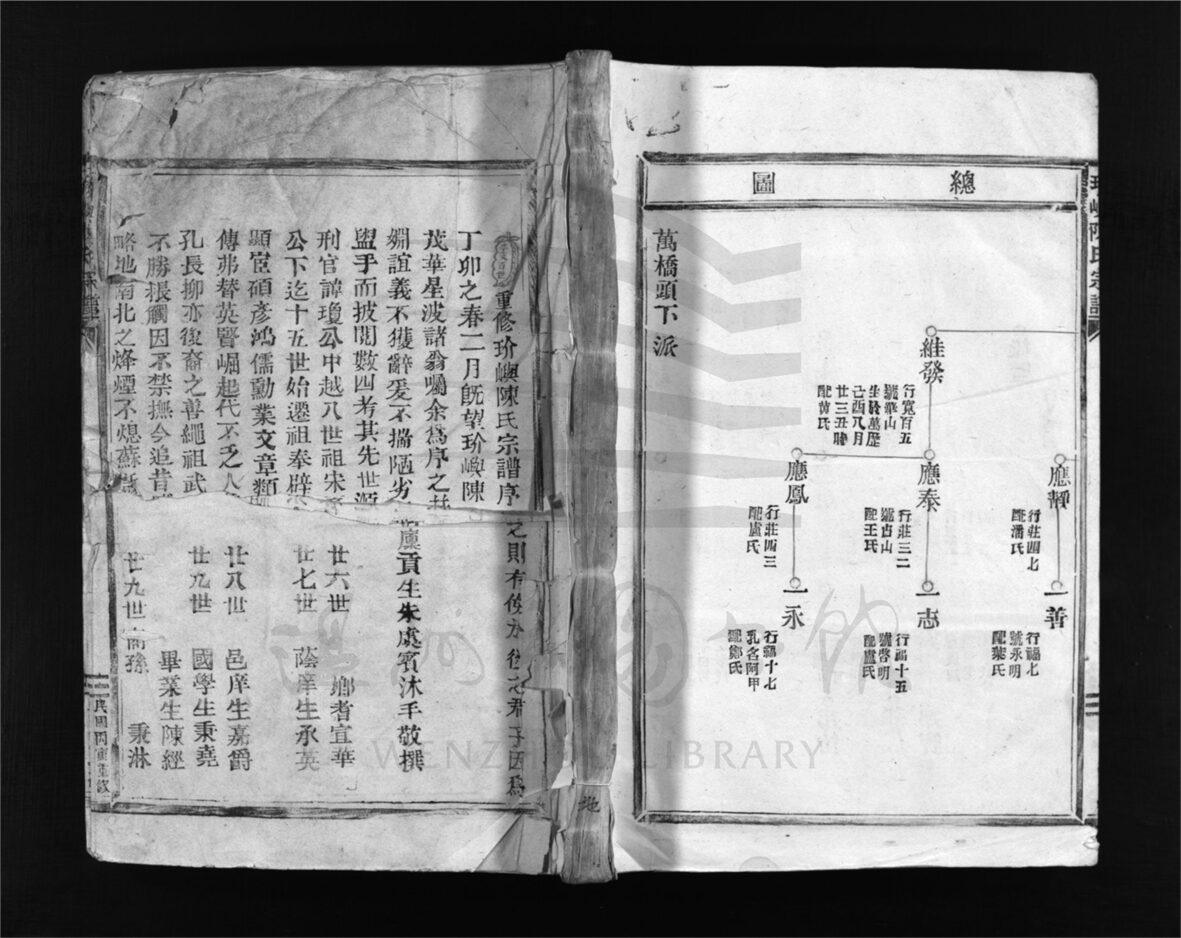 總圖
珍嶼陳氏宗譜
維發
行寬百五
號華山
生於萬歷
己酉八月
廿三丑時
配黄氏
應靜
行莊四七
配潘氏
應秦
行莊三二
號占山
配王氏
應鳳
行莊四三
配盧氏
一善
行福七
號永明
配葉氏
一志
行福十五
號啓明
配盧氏
一永
行福十七
乳名阿甲
配鄭氏
萬橋頭下派
地
重修玠嶼陳氏宗譜序
丁卯之春二月既望玠嶼陳
茂華星波諸翁囑余爲序之
姻誼義不獲辭爰不揣陋劣
盥手而披閱數四考其先世源
刑官諱瓊公中越八世祖宋
公下迄十五世始遷祖奉
顯宦碩彥鴻儒勳業文章類
傳弗替英賢崛起代不乏人
孔長抑亦後裔之善繩祖武
不勝棖觸因不禁撫今追昔
略地南北之烽煙不熄蘇
之則有後
之君子因爲
廩貢生朱處賓沐手敬撰
廿六世 鄉耆宜華
廿七世 蔭庠生承英
廿八世 邑庠生嘉爵
廿九世 國學生秉堯
畢業生陳經
廿九世裔孫 秉淋
民國丙寅重修
溫州圖書館
WENZHOU LIBRARY